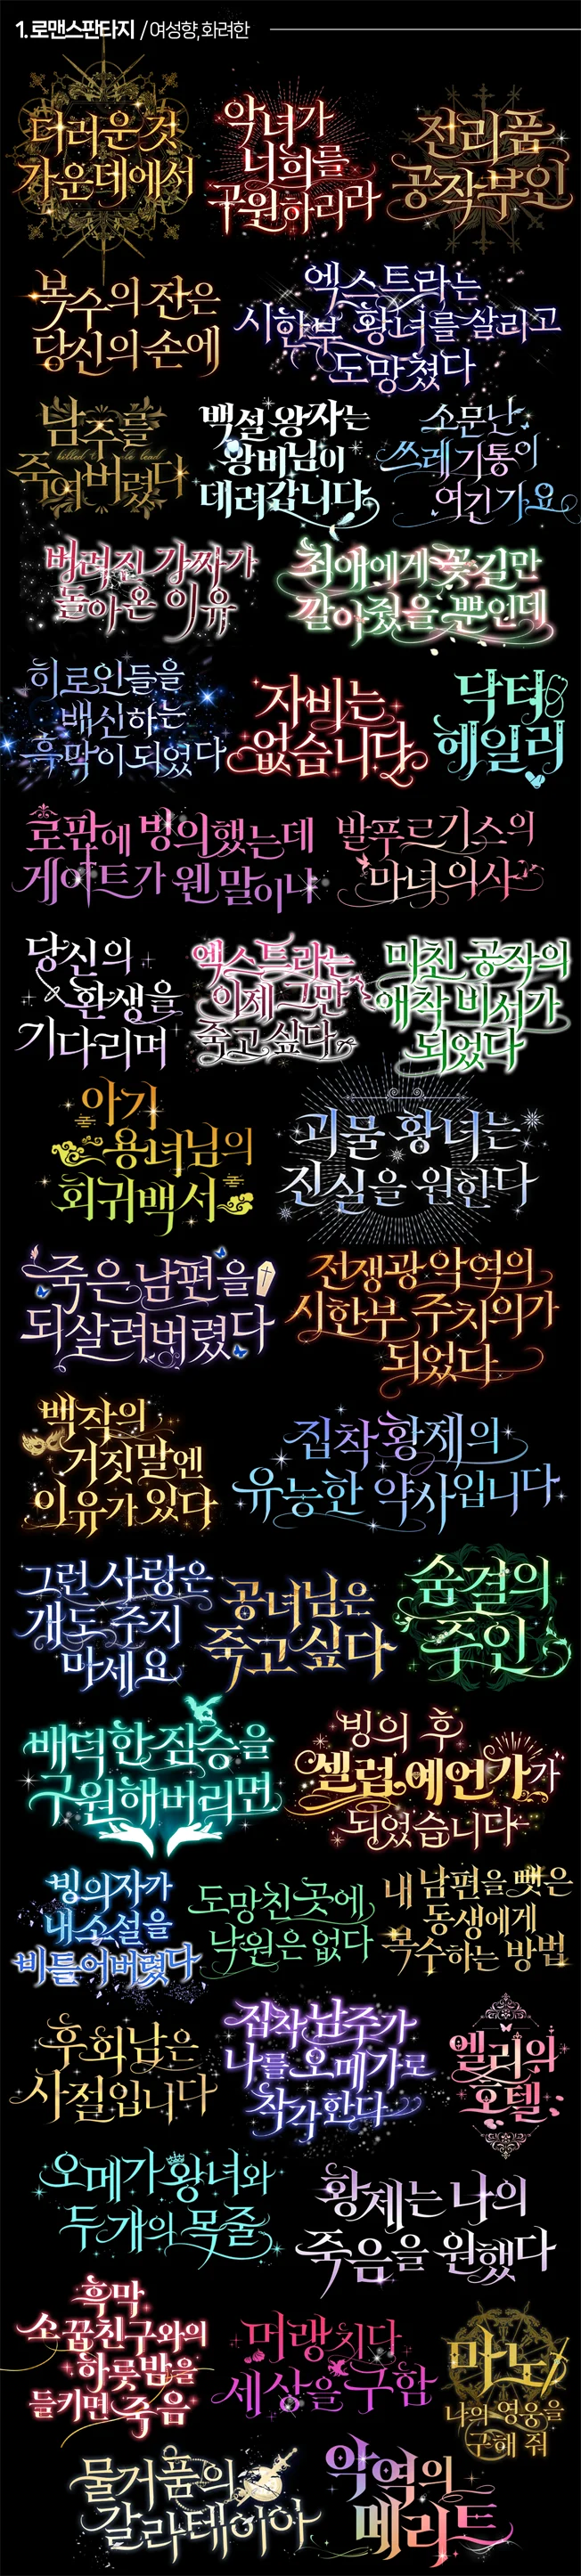 1. 로맨스판타지 / 여성향, 화려한
더러운 것
가운데에서
악녀가
너희를
구원하리라
전리품
공작부인
복수의 잔은
당신의 손에
엑스트라는
시한부 황녀를 살리고
도망쳤다
남주를
죽여버렸다
백설 왕자는
왕비님이
데려갑니다
소문난
쓰레기통이
여긴가요
버려진 가짜가
돌아온 이유
최애에게 꽃길만
깔아줬을 뿐인데
히로인들을
배신하는
흑막이 되었다
자비는
없습니다
닥터
헤일리
로판에 빙의했는데
게이트가 웬 말이냐
발푸르기스의
마녀 의사
당신의
환생을
기다리며
엑스트라는
이제 그만
죽고 싶다
미친 공작의
애착 비서가
되었다
아기
용녀님의
회귀백서
괴물 황녀는
진실을 원한다
죽은 남편을
되살려버렸다
전쟁광 악역의
시한부 주치의가
되었다
백작의
거짓말엔
이유가 있다
집착 황제의
유능한 약사입니다
그런 사랑은
개도 주지
마세요
공녀님은
죽고 싶다
숨결의
주인
배덕한 짐승을
구원해버리면
빙의 후
셀럽 예언가가
되었습니다
빙의자가
내 소설을
비틀어버렸다
도망친 곳에
낙원은 없다
내 남편을 뺏은
동생에게
복수하는 방법
후회남은
사절입니다
집착 남주가
나를 오메가로
착각한다
엘리의
호텔
오메가 왕녀와
두 개의 목줄
황제는 나의
죽음을 원했다
흑막
소꿉친구와의
하룻밤을
들키면 죽음
머랭 치다
세상을 구함
마노
나의 영웅을
구해 줘
물거품의
갈라테이아
악역의
메리트